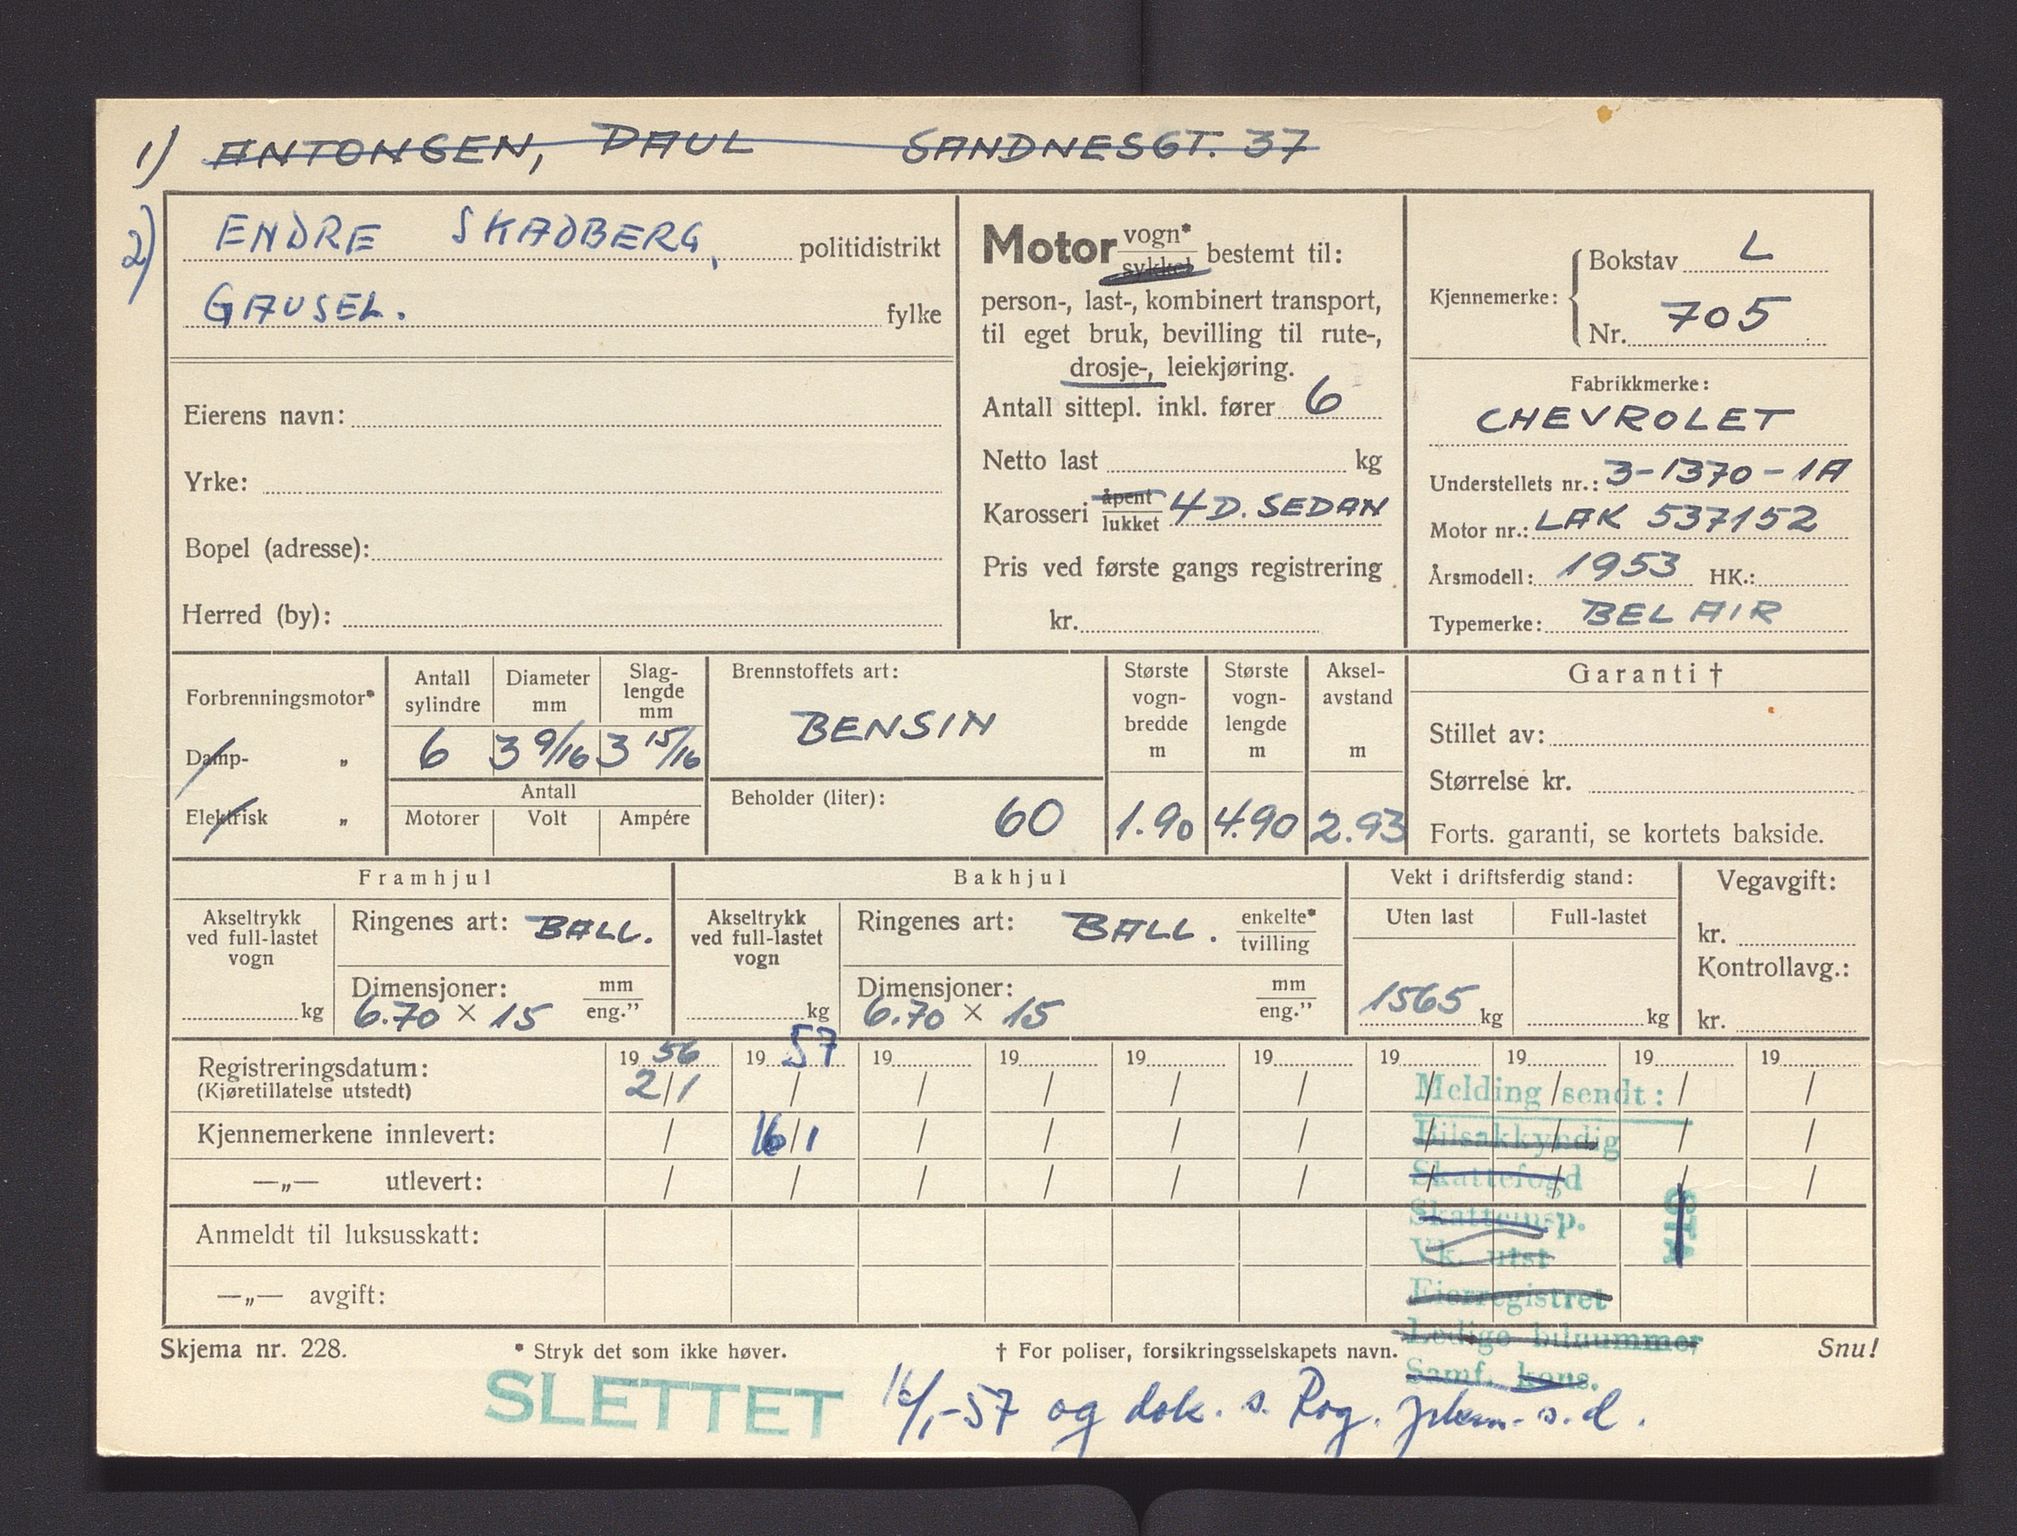 1) ANTONSEN, PAUL SANDNESGT. 37
2) ENDRE SKADBERG, politidistrikt
GAUSEL. fylke
Eierens navn:
Yrke:
Bopel (adresse):
Herred (by):
Motor vogn* / sykkel bestemt til:
person-, last-, kombinert transport,
til eget bruk, bevilling til rute-,
drosje-, leiekjøring.
Antall sittepl. inkl. fører 6
Netto last kg
Karosseri åpent / lukket 4 D. SEDAN
Pris ved første gangs registrering
kr.
Kjennemerke: Bokstav L
Nr. 705
Fabrikkmerke:
CHEVROLET
Understellets nr.: 3-1370-1A
Motor nr.: LAK 537152
Årsmodell: 1953 HK.:
Typemerke: BEL AIR
Forbrenningsmotor*
Damp- „
Elektrisk „
Antall sylindre
6
Diameter mm
3 9/16
Slag-lengde mm
3 15/16
Antall
Motorer Volt Ampére
Brennstoffets art:
BENSIN
Beholder (liter):
60
Største vogn-bredde m
1.90
Største vogn-lengde m
4.90
Aksel-avstand m
2.93
Garanti †
Stillet av:
Størrelse kr.
Forts. garanti, se kortets bakside.
Framhjul
Akseltrykk
ved full-lastet
vogn
kg
Ringenes art: BALL.
Dimensjoner: mm / eng."
6.70 × 15
Bakhjul
Akseltrykk
ved full-lastet
vogn
kg
Ringenes art: BALL. enkelte* / tvilling
Dimensjoner: mm / eng."
6.70 × 15
Vekt i driftsferdig stand:
Uten last Full-lastet
1565 kg kg
Vegavgift:
kr.
Kontrollavg.:
kr.
Registreringsdatum: 19 56 19 57 19 19 19 19 19 19 19 19
(Kjøretillatelse utstedt) 2/1 / / / / / / / / /
Kjennemerkene innlevert: / 16/1 / / / / / / / /
—„— utlevert: / / / / / / / / / /
Anmeldt til luksusskatt:
—„— avgift:
Melding sendt:
Bilsakkyndig
Skattefogd
Skatteinsp.
Vk. utst
Eierregistret
Ledige bilnummer
Samf. kons.
Skjema nr. 228. * Stryk det som ikke høver. † For poliser, forsikringsselskapets navn. Snu!
SLETTET 16/1-57 og dok. s. Rog. s.d.